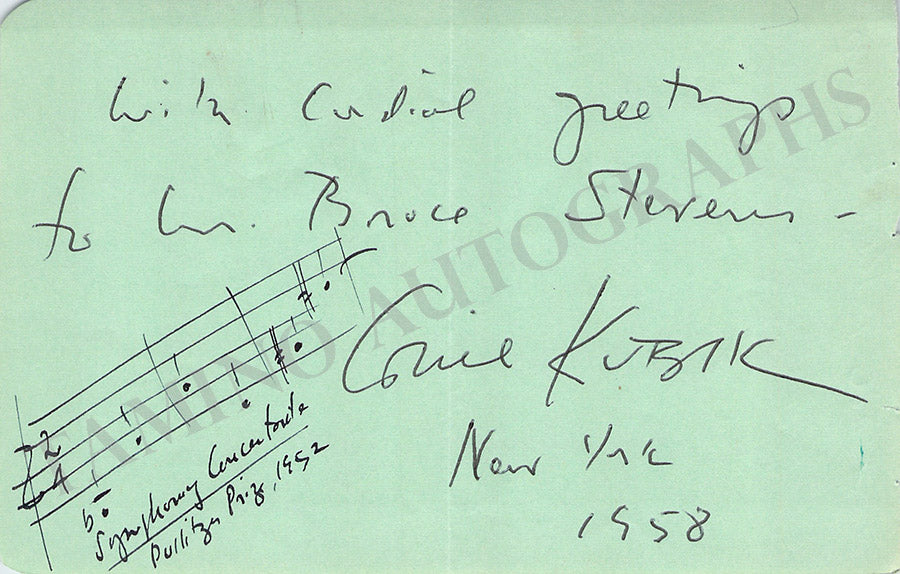 With Cordial greetings
to Mr. Bruce Stevens -
Gail KUBIK
New York
1958
2
4
Symphony Concertante
Pulitzer Prize, 1952
TAMINO AUTOGRAPHS